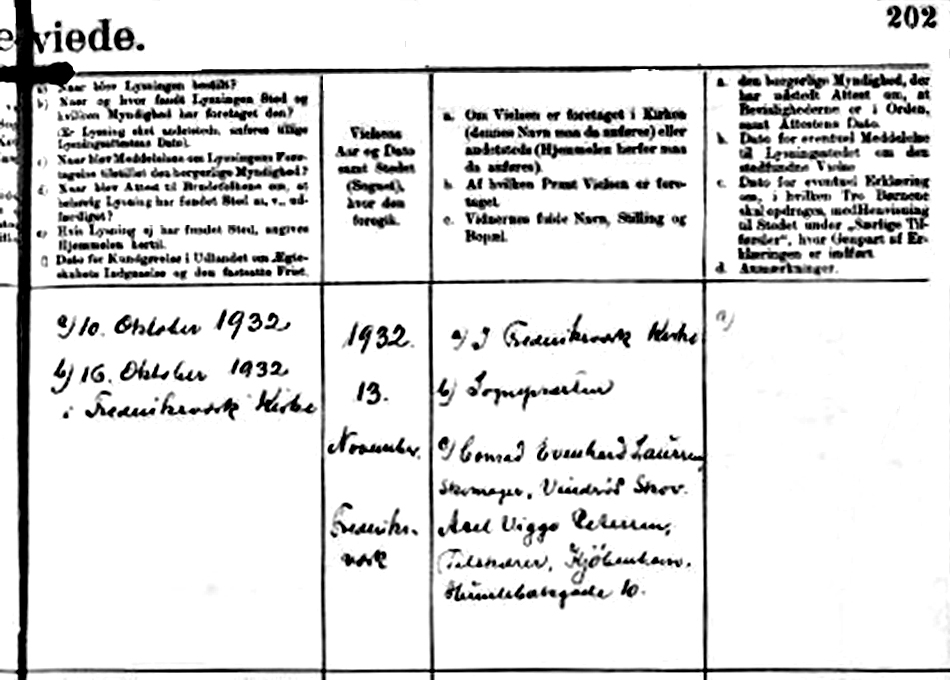 202
viede.
a) Naar blev Lysningen bestilt?
b) Naar og hvor fandt Lysningen Sted og
hvilken Myndighed har foretaget den?
(Er Lysning sket andetsteds, anføres tillige
Lysningsattestens Dato).
c) Naar blev Meddelelse om Lysningens Fore-
tagelse tilstillet den borgerlige Myndighed?
d) Naar blev Attest til Brudefolkene om, at
behørig Lysning har fundet Sted m. v., ud-
færdiget?
e) Hvis Lysning ej har fundet Sted, angives
Hjemmelen hertil.
f) Dato for Kundgørelse i Udlandet om Ægte-
skabets Indgaaelse og den fastsatte Frist.
Vielsens
Aar og Dato
samt Stedet
(Sognet),
hvor den
foregik.
a. Om Vielsen er foretaget i Kirken
(dennes Navn maa da anføres) eller
andetsteds (Hjemmelen herfor maa
da anføres).
b. Af hvilken Præst Vielsen er fore-
taget.
c. Vidnernes fulde Navn, Stilling og
Bopæl.
a. den borgerlige Myndighed, der
har udstedt Attest om, at
Betingelserne er i Orden,
samt Attestens Dato.
b. Dato for eventuel Meddelelse
til Lysningsstedet om den
stedfundne Vielse
c. Dato for eventuel Erklæring
om, i hvilken Tro Børnene
skal opdrages, med Henvisning
til Stedet under „Særlige Til-
førsler“, hvor Genpart af Er-
klæringen er indført.
d. Anmærkninger.
a) 10. Oktober 1932
b) 16. Oktober 1932
i Frederiksværk Kirke
1932.
13.
November.
Frederiks-
værk
a) I Frederiksværk Kirke
b) Sognepræsten
c) Conrad Evenhard Laursen
Skomager, Vinderød Skov.
Axel Viggo Petersen,
Tilskærer, Kjøbenhavn,
10.
a)